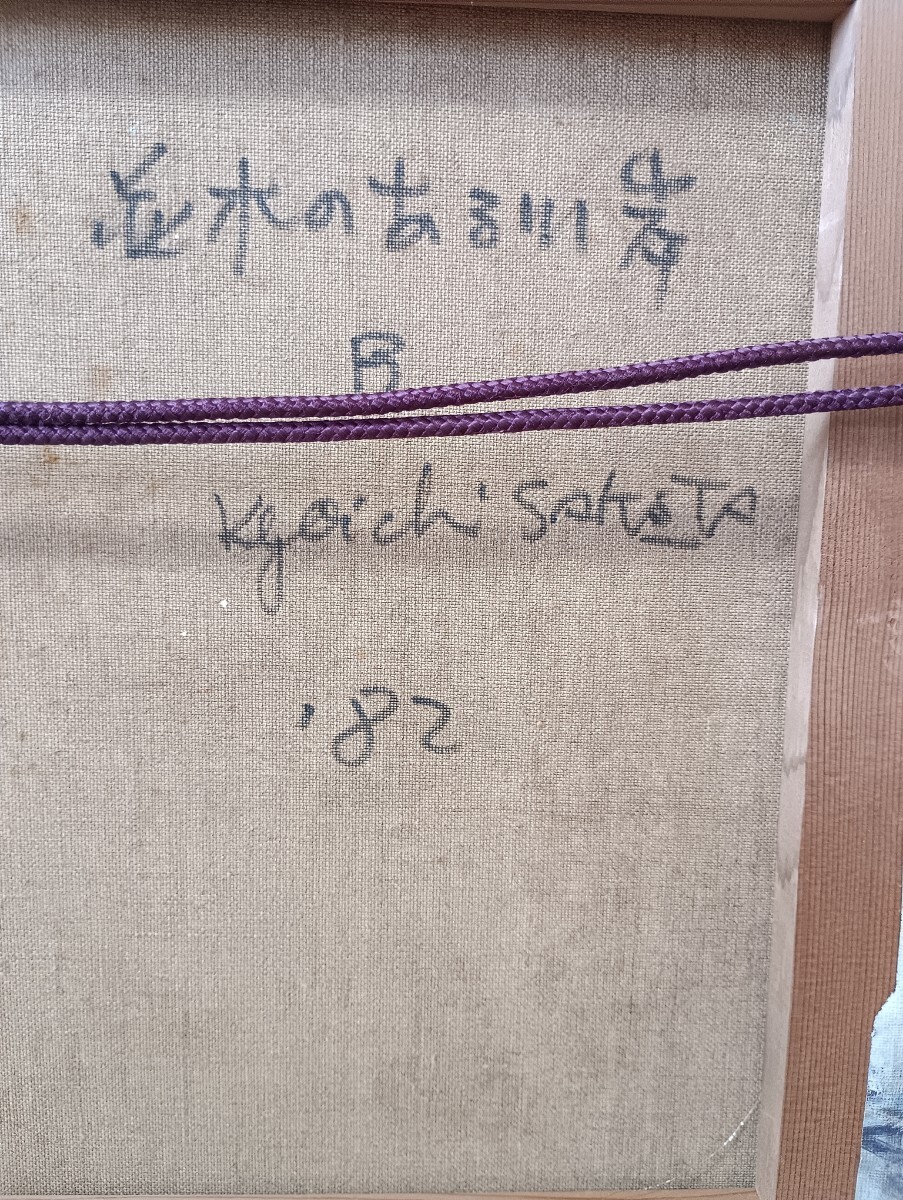 並木のある川岸
B
Kyoichi SAKATA
'82